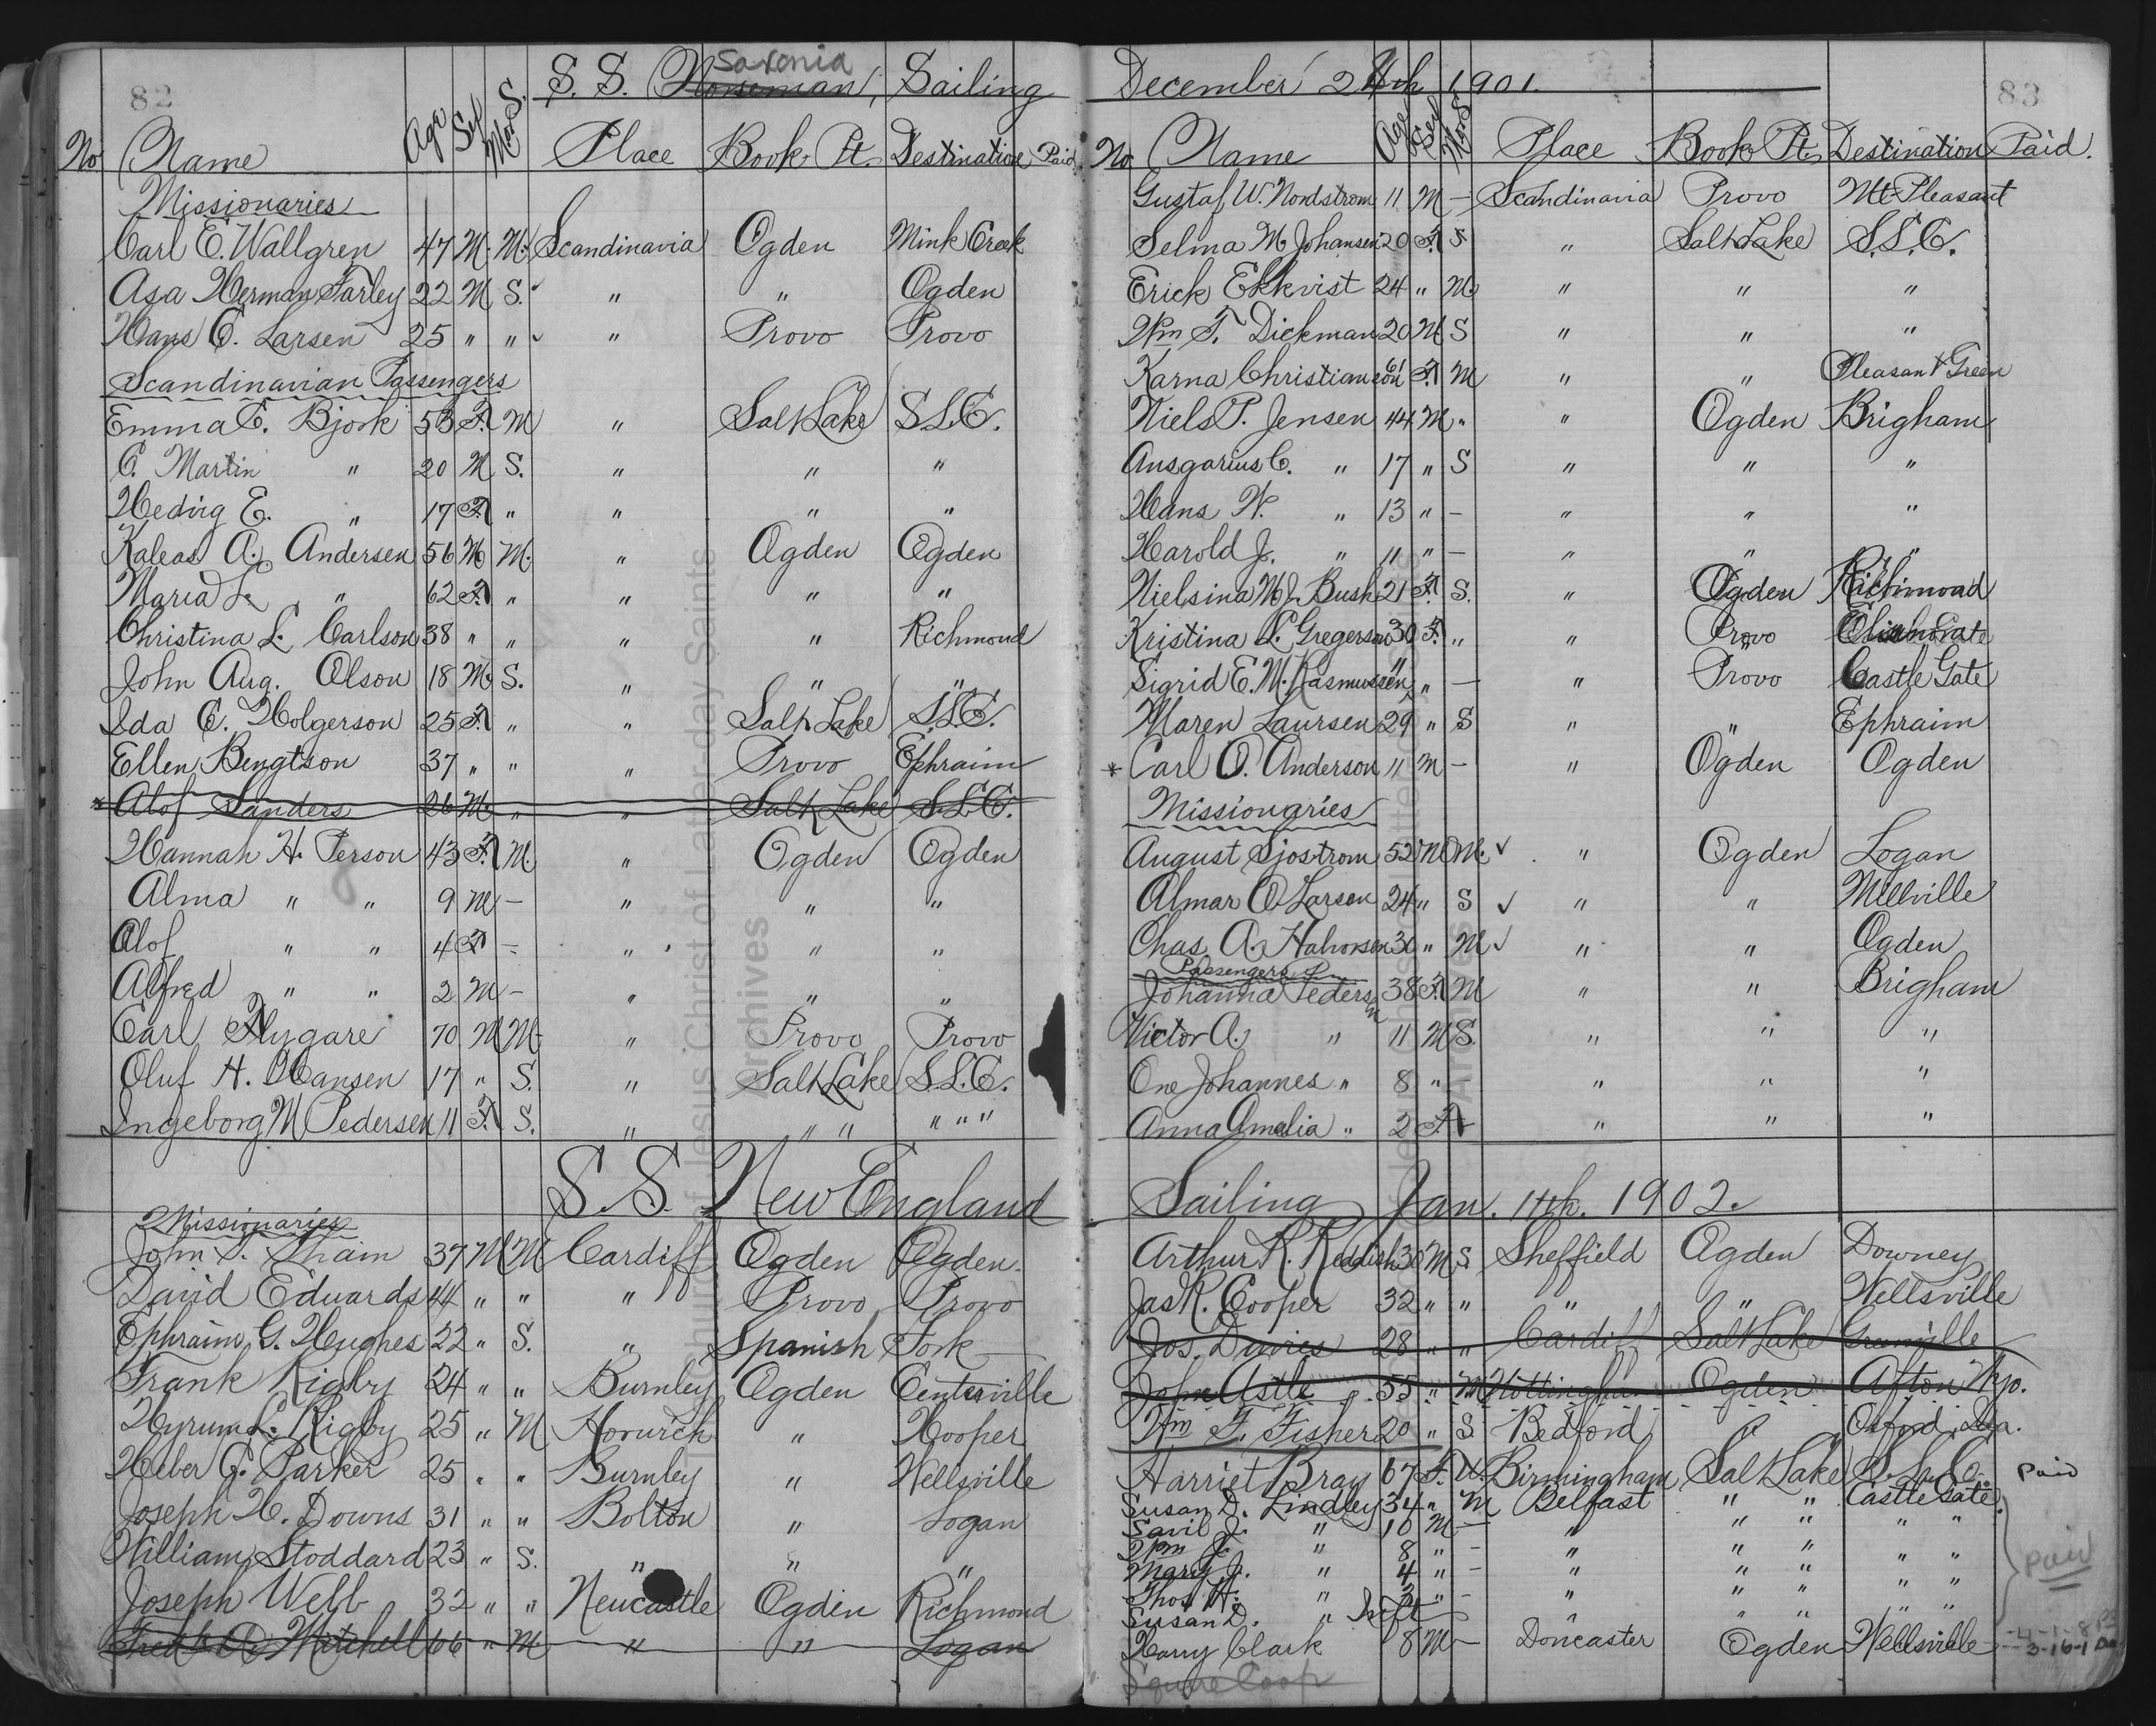 82
Saxonia
S. S. Norseman, Sailing
No Name Age Sex M or S. Place Book Pt. Destination Paid
Missionaries
Carl E. Wallgren 47 M. M. ✓ Scandinavia Ogden Mink Creek
Asa Herman Farley 22 M S. ✓ " " Ogden
Hans C. Larsen 25 " " ✓ " Provo Provo
Scandinavian Passengers
Emma C. Bjork 53 F. M " Salt Lake S.L.C.
C. Martin " 20 M S. " " "
Hedvig E. " 17 F. " " " "
Kaleas A. Andersen 56 M M. " Ogden Ogden
Maria L. " 62 F. " " " "
Christina L. Carlson 38 " " " " Richmond
John Aug. Olson 18 M. S. " " "
Ida C. Holgerson 25 F. " " Salt Lake S.L.C.
Ellen Bengtson 37 " " " Provo Ephraim
* Alof Sanders 26 M " " Salt Lake S.L.C.
Hannah H. Person 43 F. M. " Ogden Ogden
Alma " " 9 M - " " "
Olof " " 4 F. - " " "
Alfred " " 2 M - " " "
Carl Flygare 70 M M. " Provo Provo
Oluf H. Hansen 17 " S. " Salt Lake S.L.C.
Ingeborg M Pedersen 11 F. S. " " " " " "
S.S. New England
Missionaries
John T. Thain 37 M M Cardiff Ogden Ogden.
David Edwards 44 " " " Provo Provo
Ephraim G. Hughes 22 " S. " Spanish Fork
Frank Rigby 24 " " Burnley Ogden Centerville
Hyrum L. Rigby 25 " M Horwich " Hooper
Heber C. Parker 25 " " Burnley " Wellsville
Joseph H. Downs 31 " " Bolton " Logan
William Stoddard 23 " S. " " "
Joseph Webb 32 " " Newcastle Ogden Richmond
Fred A. Mitchell 66 " M " " Logan
83
December 24th 1901.
No. Name Age Sex M or S Place Book Pt. Destination Paid.
Gustaf W. Nordstrom 11 M - Scandinavia Provo Mt Pleasant
Selma M. Johansen 20 F. S " Salt Lake S.L.C.
Erick Ekkvist 24 " M. " " "
Wm T. Dickman 20 M S " " "
Karna Christianson 61 F. M " " Pleasant Green
Niels P. Jensen 44 M " " Ogden Brigham
Ansgarius C. " 17 " S " " "
Hans W. " 13 " - " " "
Harold J. " 11 " - " " "
Nielsina M J. Bush 21 F. S. " Ogden Richmond
Kristina L. Gregerson 30 F. " " Provo
Sigrid E. M. Rasmussen " " - " Provo Castle Gate
Maren Laursen 29 " S " " Ephraim
* Carl O. Anderson 11 M - " Ogden Ogden
Missionaries
August Sjostrom 52 M M. ✓ " Ogden Logan
Almar O. Larsen 24 " S ✓ " " Millville
Chas. A. Halvorsen 30 " M ✓ " " Ogden
Passengers
Johanna Pedersen 38 F. M " " Brigham
Victor A. " 11 M S. " " "
One Johannes " 8 " - " " "
Anna Amelia " 2 F. - " " "
Sailing Jan. 11th. 1902.
Arthur R. Reddish 30 M S Sheffield Ogden Downey
Jas R. Cooper 32 " " " " Wellsville
Jos. Davies 28 " " Cardiff Salt Lake
John Astle 55 " M Nottingham Ogden Afton Wyo.
Wm F. Fisher 20 " S Bedford " Oxford Ida.
Harriet Bray 67 F. W. Birmingham Salt Lake S.L.C. Paid
Susan D. Lindley 34 " M Belfast " " Castle Gate
Savil J. " 10 M - " " " " "
Wm J. " 8 " - " " " " " Paid
Mary J. " 4 " - " " " " "
Thos H. " " - " " " " "
Susan D. " Inft " " " " "
Harry Clark 8 M - Doncaster Ogden Wellsville
Squire Coop